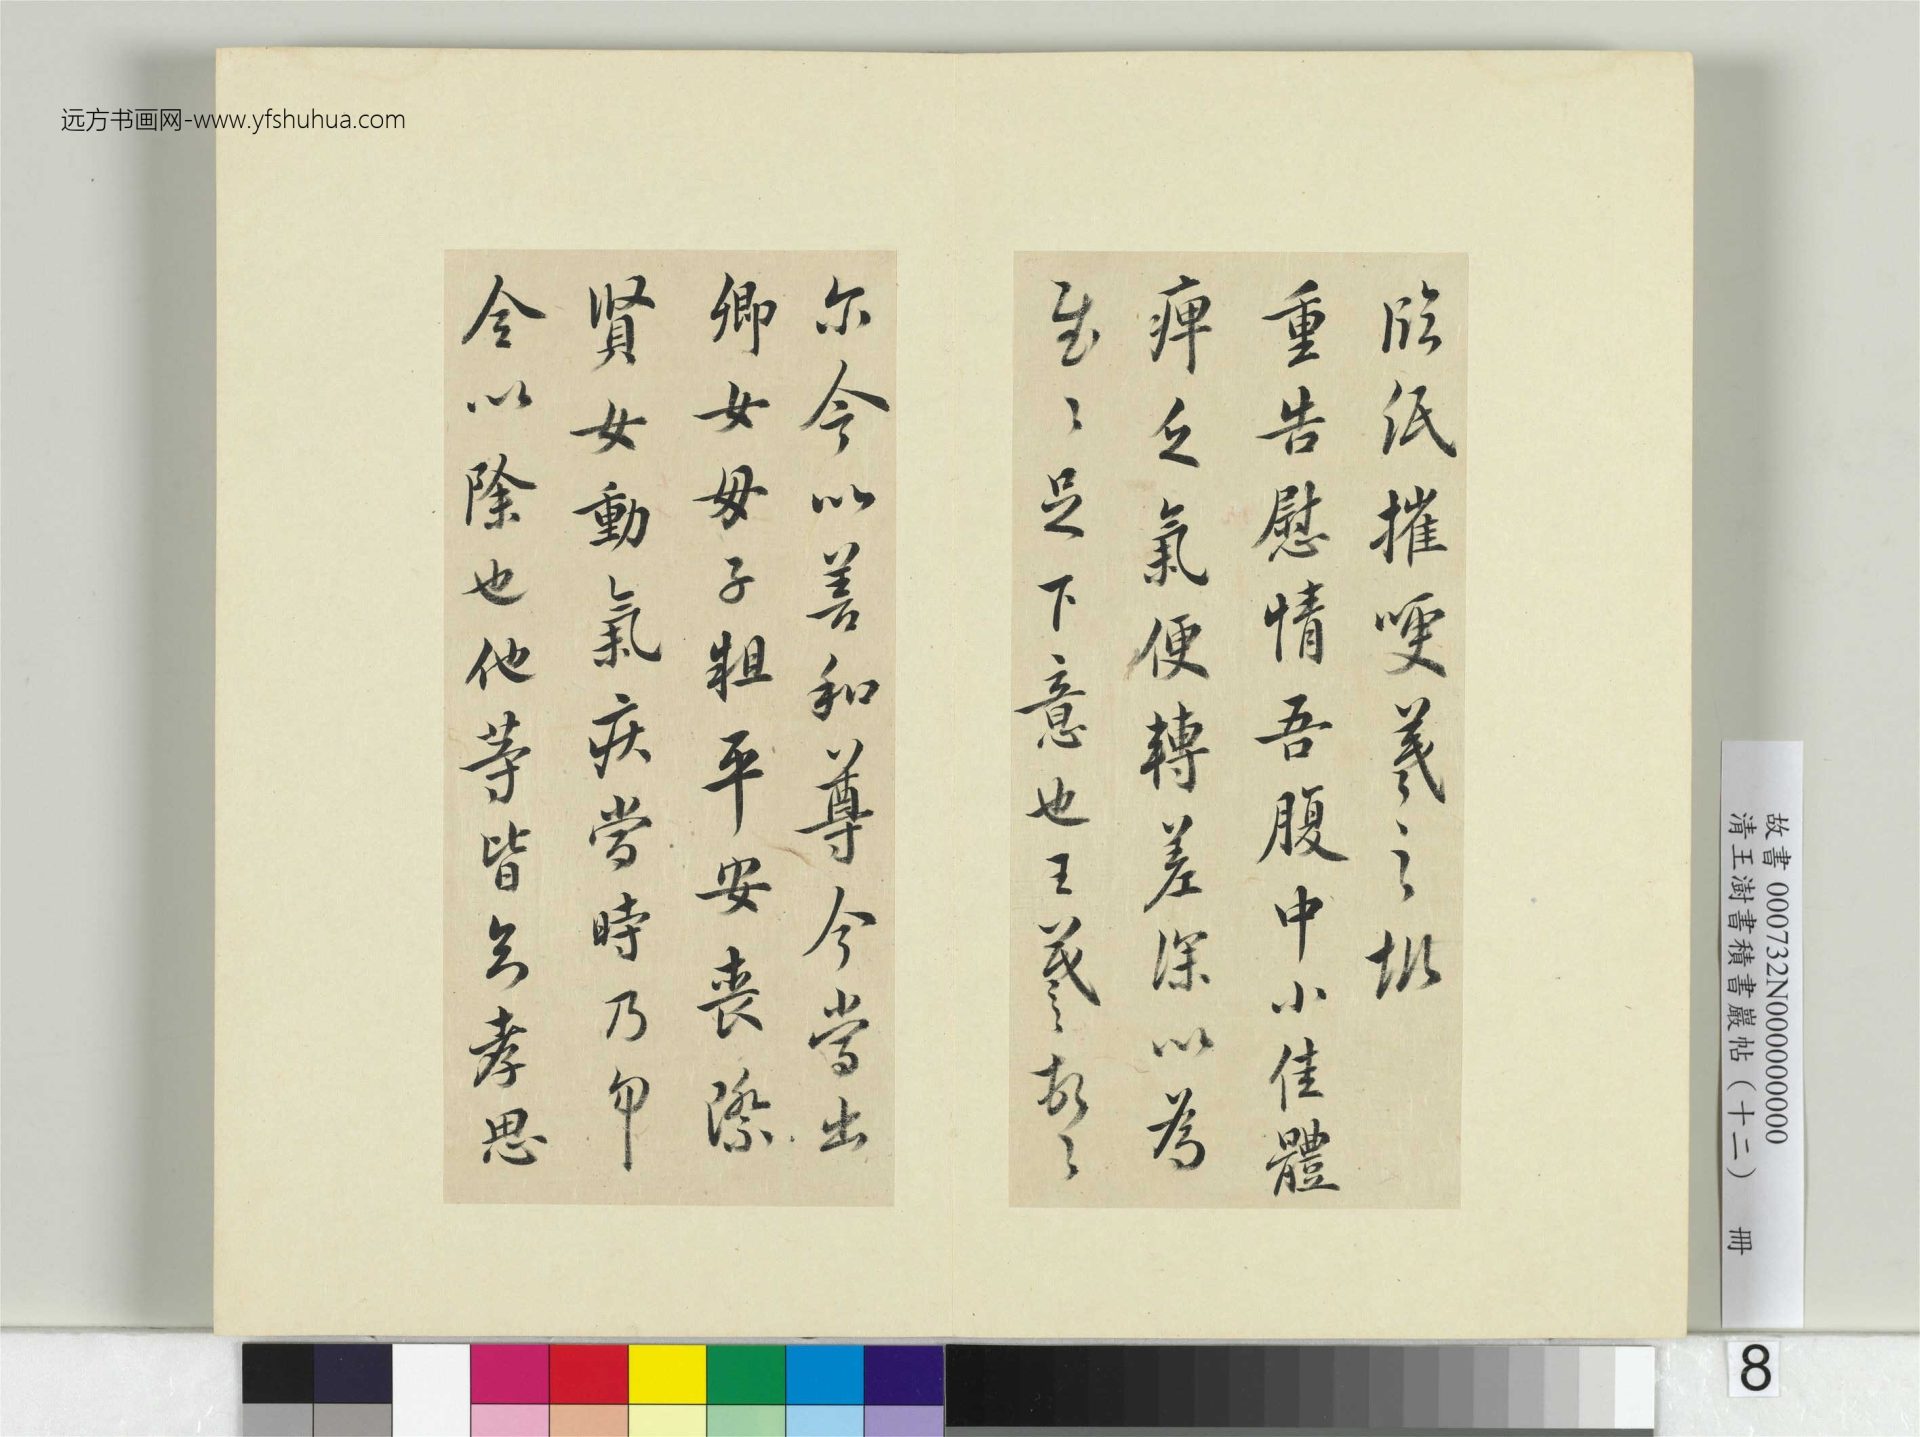 远方书画网-www.yfshuhua.com
臨紙摧哽羲之
重告慰情吾腹中小佳體
痺乏氣便轉差深以為
足下意也王羲之敬
尒今以善和尊今當出
卿女母子粗平安喪際
賢女動氣疾當時乃
令以除也他等皆孝思
故書 000732N000000000
清王澍書積書巖帖(十二) 冊
8